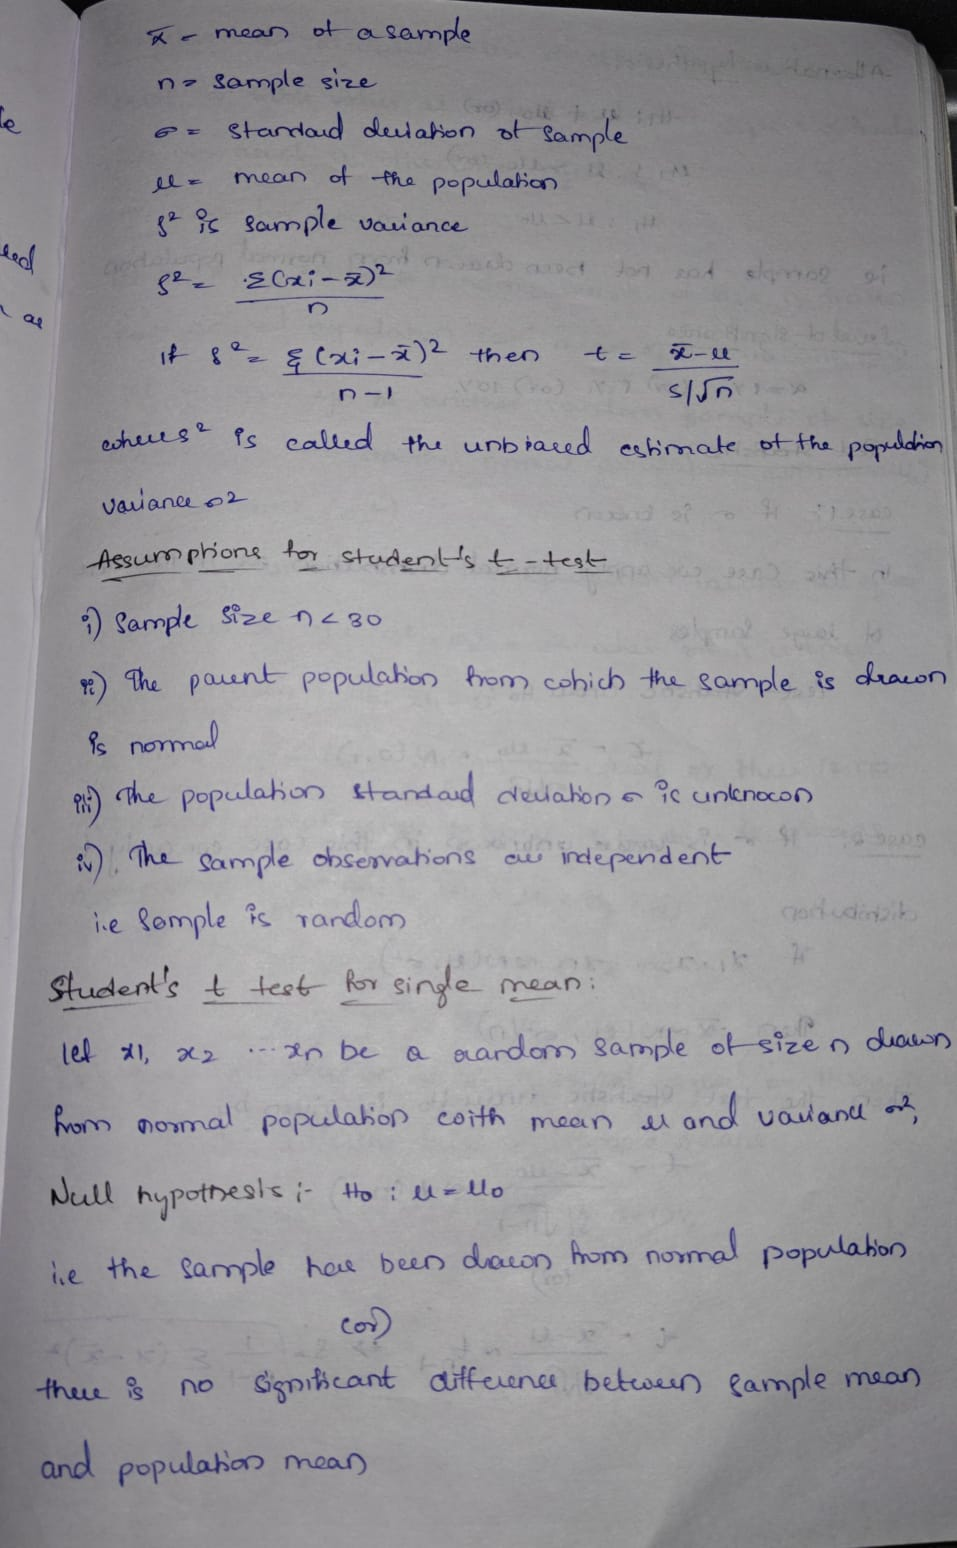 x̄ - mean of a sample
n = sample size
σ = standard deviation of sample
μ = mean of the population
s² is sample variance
s² = Σ(xi - x̄)² / n
if s² = Σ(xi - x̄)² / n-1 then t = x̄ - μ / s/√n
where s² is called the unbiased estimate of the population
variance σ2
Assumptions for student's t - test
i) Sample size n < 30
ii) The parent population from which the sample is drawn
is normal
iii) The population standard deviation σ is unknown
iv) The sample observations are independent
i.e sample is random
Student's t test for single mean:
let x1, x2 ... xn be a random sample of size n drawn
from normal population with mean μ and variance σ2,
Null hypothesis :- H0 : μ = μ0
i.e the sample has been drawn from normal population
(or)
there is no significant difference between sample mean
and population mean